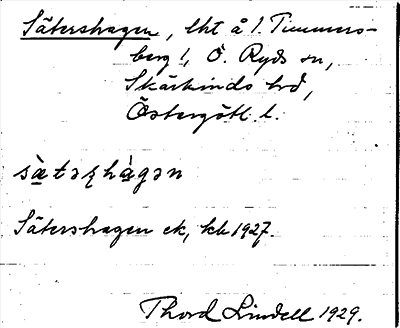 Sätershagen, lht å 1. Timmers-
berg 1, Ö. Ryds sn,
Skärkinds hd,
Östergötl. l.
sä̀tәʂhàgәn
Sätershagen ek, kb 1927.
Thord Lindell 1929.